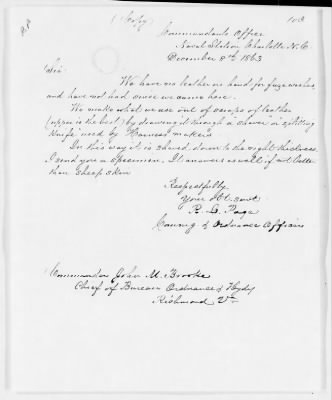 (Copy)
103
Commandants Office
Naval Station Charlotte N.C.
December 8th 1863
Sir
We have no leather on hand for fuze washers,
and have not had since we came here.
We make what we use out of scraps of leather
(upper is the best) by drawing it through a "shaver" or splitting
Knife used by Harness makers
In this way it is shaved down to the right thickness.
I send you a specimen. It answers as well if not better
than sheep skin
Respectfully
Your Obt Servt
R. L. Page
Comdg & Ordnance Affairs
Commander John M. Brooke
Chief of Bureau Ordnance & Hydy
Richmond Va